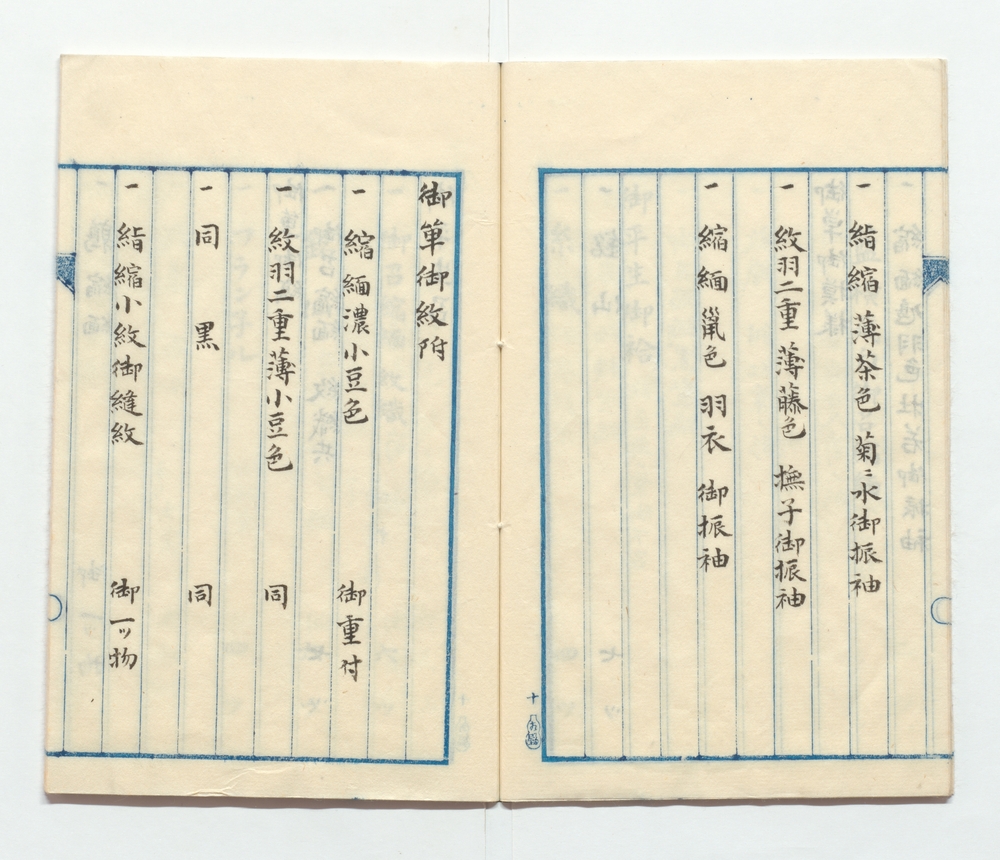 一 絽縮 薄茶色 菊ニ水御振袖
一 紋羽二重 薄藤色 撫子御振袖
一 縮緬 鴬色 羽衣 御振袖
十
御単御紋附
一 縮緬濃小豆色 御重付
一 紋羽二重薄小豆色 同
一 同 黒 同
一 絽縮小紋御縫紋 御一ッ物